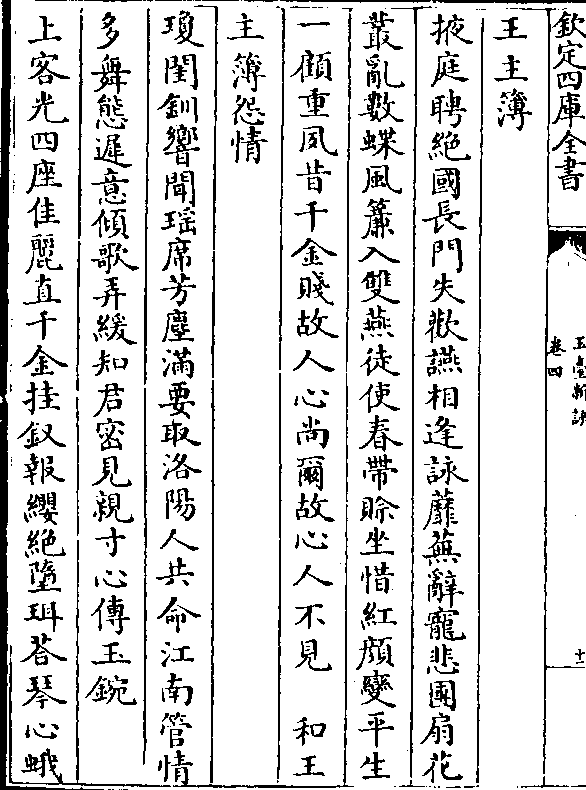 欽定四庫全書
玉臺新詠
卷四
十二
王主簿
掖庭聘絶國長門失歡讌相逢詠蘼蕪辭寵悲團扇花
叢亂數蝶風簾入雙燕徒使春帶賖坐惜紅顔變平生
一顧重夙昔千金賤故人心尚爾故心人不見　和王
主簿怨情
瓊閨釧響聞瑶席芳塵滿要取洛陽人共命江南管情
多舞態遲意傾歌弄緩知君密見親寸心傳玉鋺
上客光四座佳麗直千金挂釵報纓絶墮珥荅琴心蛾